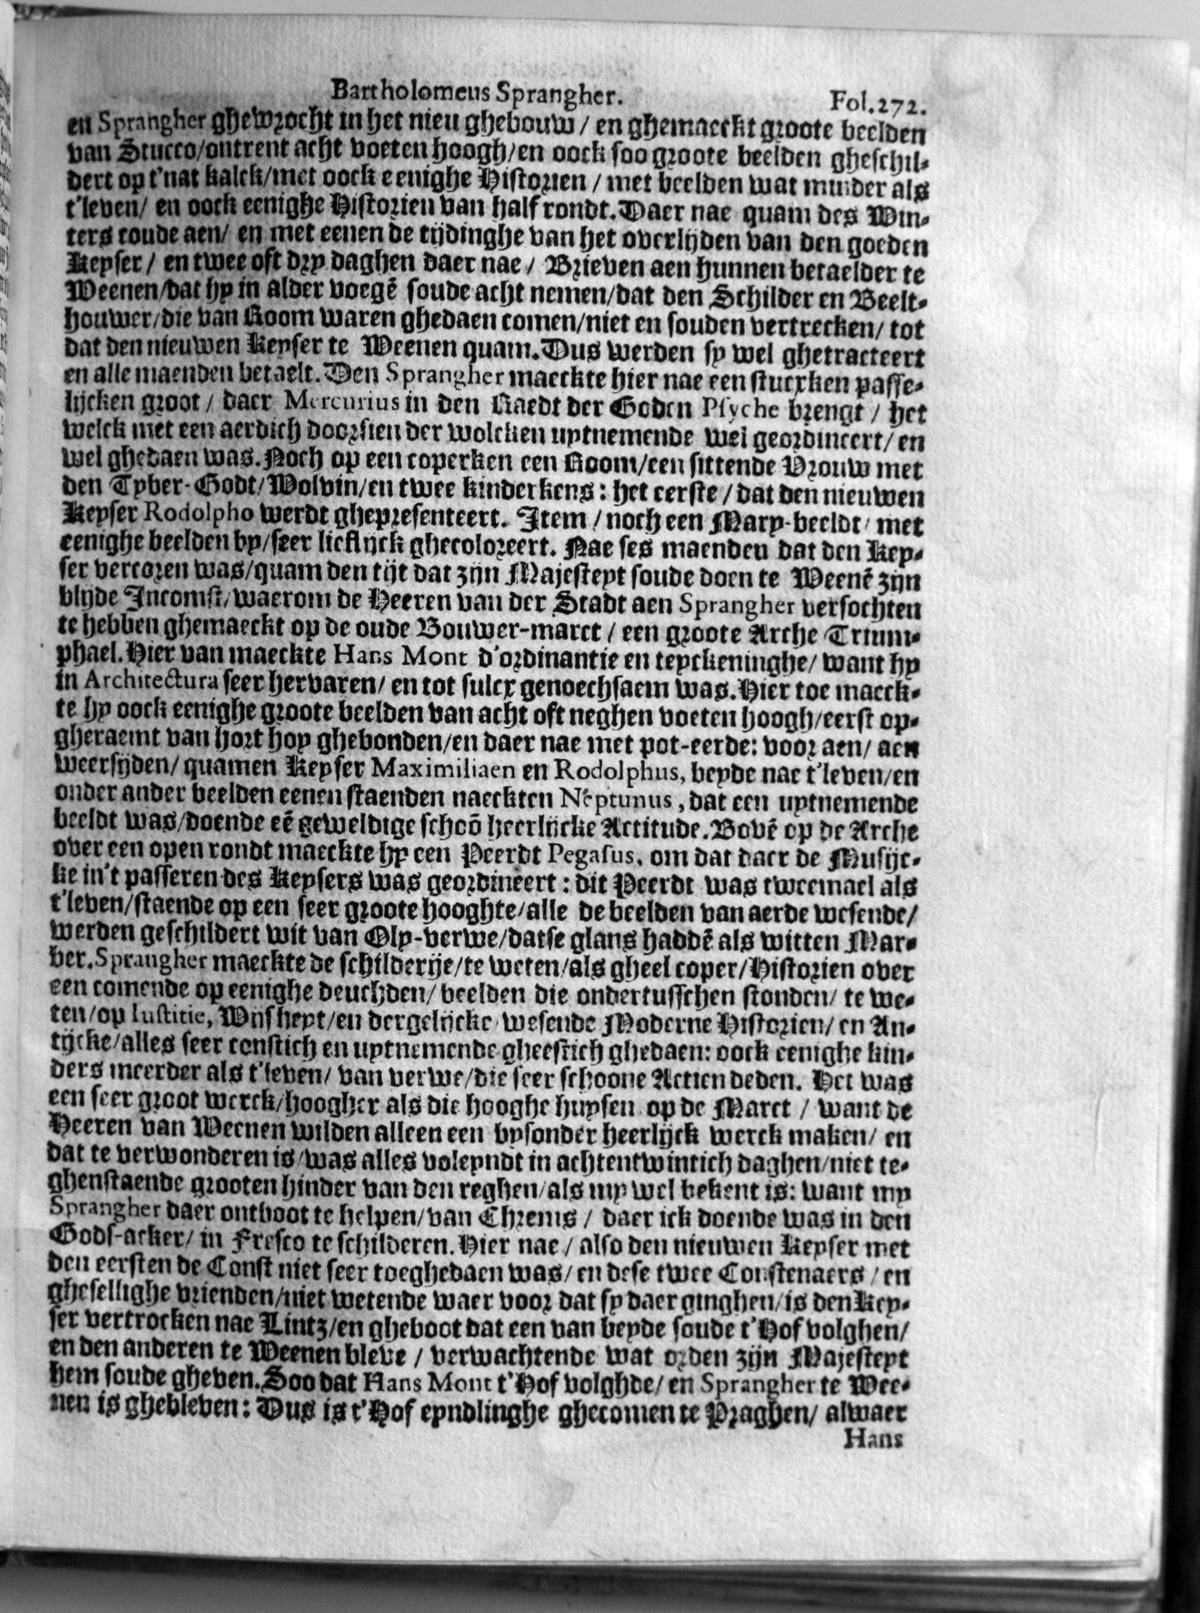 Bartholomeus Sprangher. Fol.272.
en Sprangher ghewrocht in het nieu ghebouw/ en ghemaeckt groote beelden
van Stucco/ontrent acht voeten hoogh/en oock soo groote beelden gheschil-
dert op t'nat kalck/met oock eenighe Historien / met beelden wat minder als
t'leven/ en oock eenighe Historien van half rondt. Daer nae quam des Win-
ters coude aen/ en met eenen de tijdinghe van het overlijden van den goeden
Keyser / en twee oft dry daghen daer nae / Brieven aen hunnen betaelder te
Weenen/dat hy in alder voegē soude acht nemen/dat den Schilder en Beelt-
houwer/die van Room waren ghedaen comen/niet en souden vertrecken/ tot
dat den nieuwen Keyser te Weenen quam. Dus werden sy wel ghetracteert
en alle maenden betaelt. Den Sprangher maeckte hier nae een stucxken passe-
lijcken groot / daer Mercurius in den Raedt der Goden Psyche brengt / het
welck met een aerdich doorsien der wolcken uytnemende wel geordineert/ en
wel ghedaen was. Noch op een coperken een Room/een sittende Vrouw met
den Tyber-Godt/Wolvin/en twee kinderkens: het eerste / dat den nieuwen
Keyser Rodolpho werdt ghepresenteert. Item / noch een Mary-beeldt/ met
eenighe beelden by/seer lieflijck ghecoloreert. Nae ses maenden dat den Key-
ser vercoren was/quam den tijt dat zijn Majesteyt soude doen te Weenē zijn
blijde Incomst/waerom de Heeren van der Stadt aen Sprangher versochten
te hebben ghemaeckt op de oude Bouwer-marct / een groote Arche Trium-
phael. Hier van maeckte Hans Mont d'ordinantie en teyckeninghe/ want hy
in Architectura seer hervaren/ en tot sulcx genoechsaem was. Hier toe maeck-
te hy oock eenighe groote beelden van acht oft neghen voeten hoogh/eerst op-
gheraemt van hort hoy ghebonden/en daer nae met pot-eerde: voor aen/ aen
weersijden/ quamen Keyser Maximiliaen en Rodolphus, beyde nae t'leven/en
onder ander beelden eenen staenden naeckten Neptunus, dat een uytnemende
beeldt was/doende eē geweldige schoō heerlijcke Actitude. Bovē op de Arche
over een open rondt maeckte hy een Peerdt Pegasus, om dat daer de Musijc-
ke in't passeren des Keysers was geordineert: dit Peerdt was tweemael als
t'leven/staende op een seer groote hooghte/alle de beelden van aerde wesende/
werden geschildert wit van Oly-verwe/datse glans haddē als witten Mar-
ber. Sprangher maeckte de schilderije/te weten/als gheel coper/Historien over
een comende op eenighe deuchden/ beelden die ondertusschen stonden/ te we-
ten/op Iustitie, Wijsheyt/en dergelijcke wesende Moderne Historien/ en An-
tijcke/alles seer constich en uytnemende gheestich ghedaen: oock eenighe kin-
ders meerder als t'leven/ van verwe/die seer schoone Actien deden. Het was
een seer groot werck/hoogher als die hooghe huysen op de Marct / want de
Heeren van Weenen wilden alleen een bysonder heerlijck werck maken/ en
dat te verwonderen is/was alles voleyndt in achtentwintich daghen/niet te-
ghenstaende grooten hinder van den reghen/als my wel bekent is: want my
Sprangher daer ontboot te helpen/van Chrems / daer ick doende was in den
Gods-acker/ in Fresco te schilderen. Hier nae / also den nieuwen Keyser met
den eersten de Const niet seer toeghedaen was/ en dese twee Constenaers / en
ghesellighe vrienden/niet wetende waer voor dat sy daer ginghen/is den Key-
ser vertrocken nae Lintz/en gheboot dat een van beyde soude t'Hof volghen/
en den anderen te Weenen bleve / verwachtende wat orden zijn Majesteyt
hem soude gheven. Soo dat Hans Mont t'Hof volghde/ en Sprangher te Wee-
nen is ghebleven: Dus is t'Hof eyndlinghe ghecomen te Praghen/ alwaer
Hans